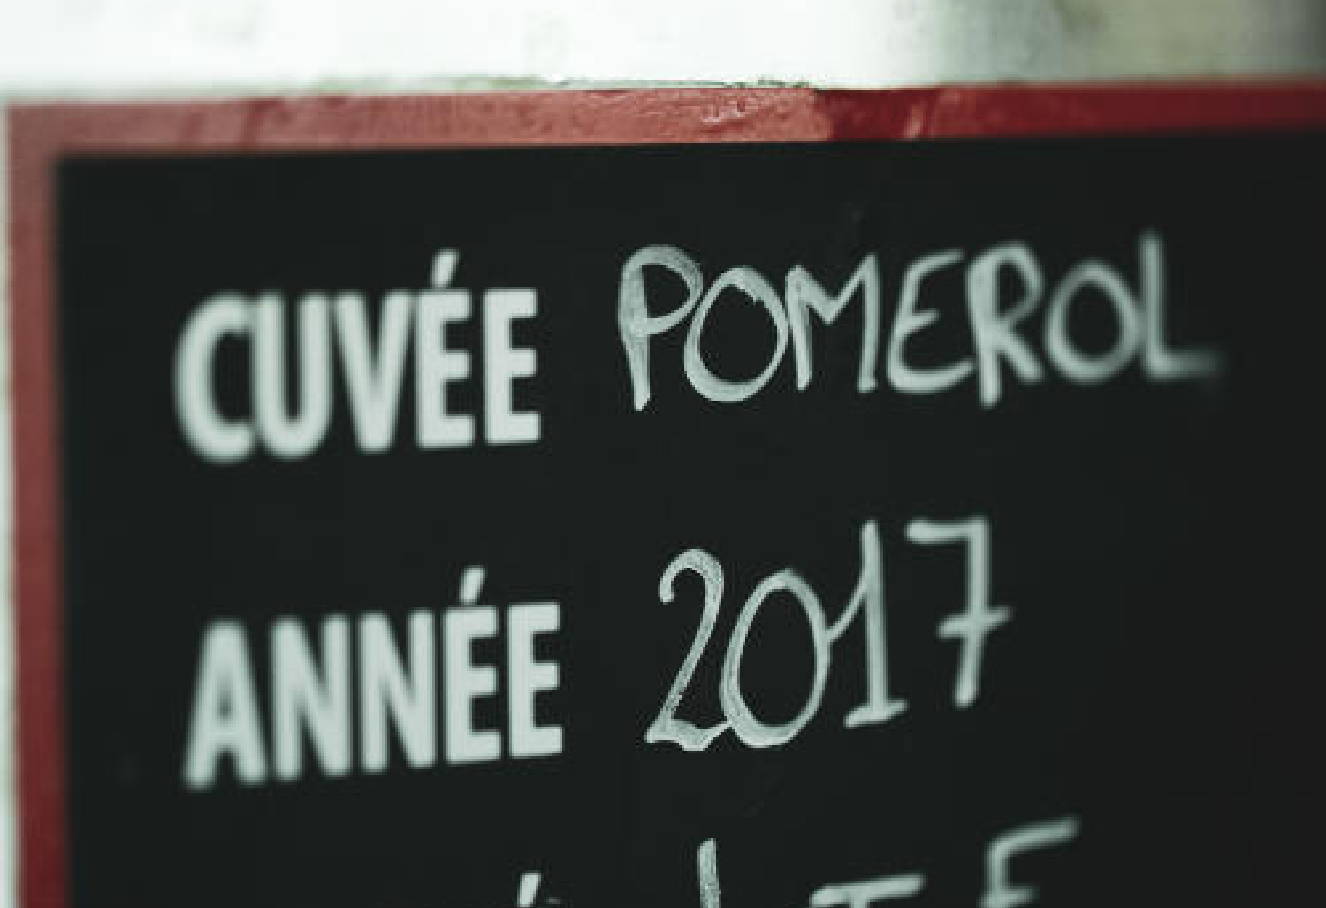 CUVÉE POMEROL
ANNÉE 2017